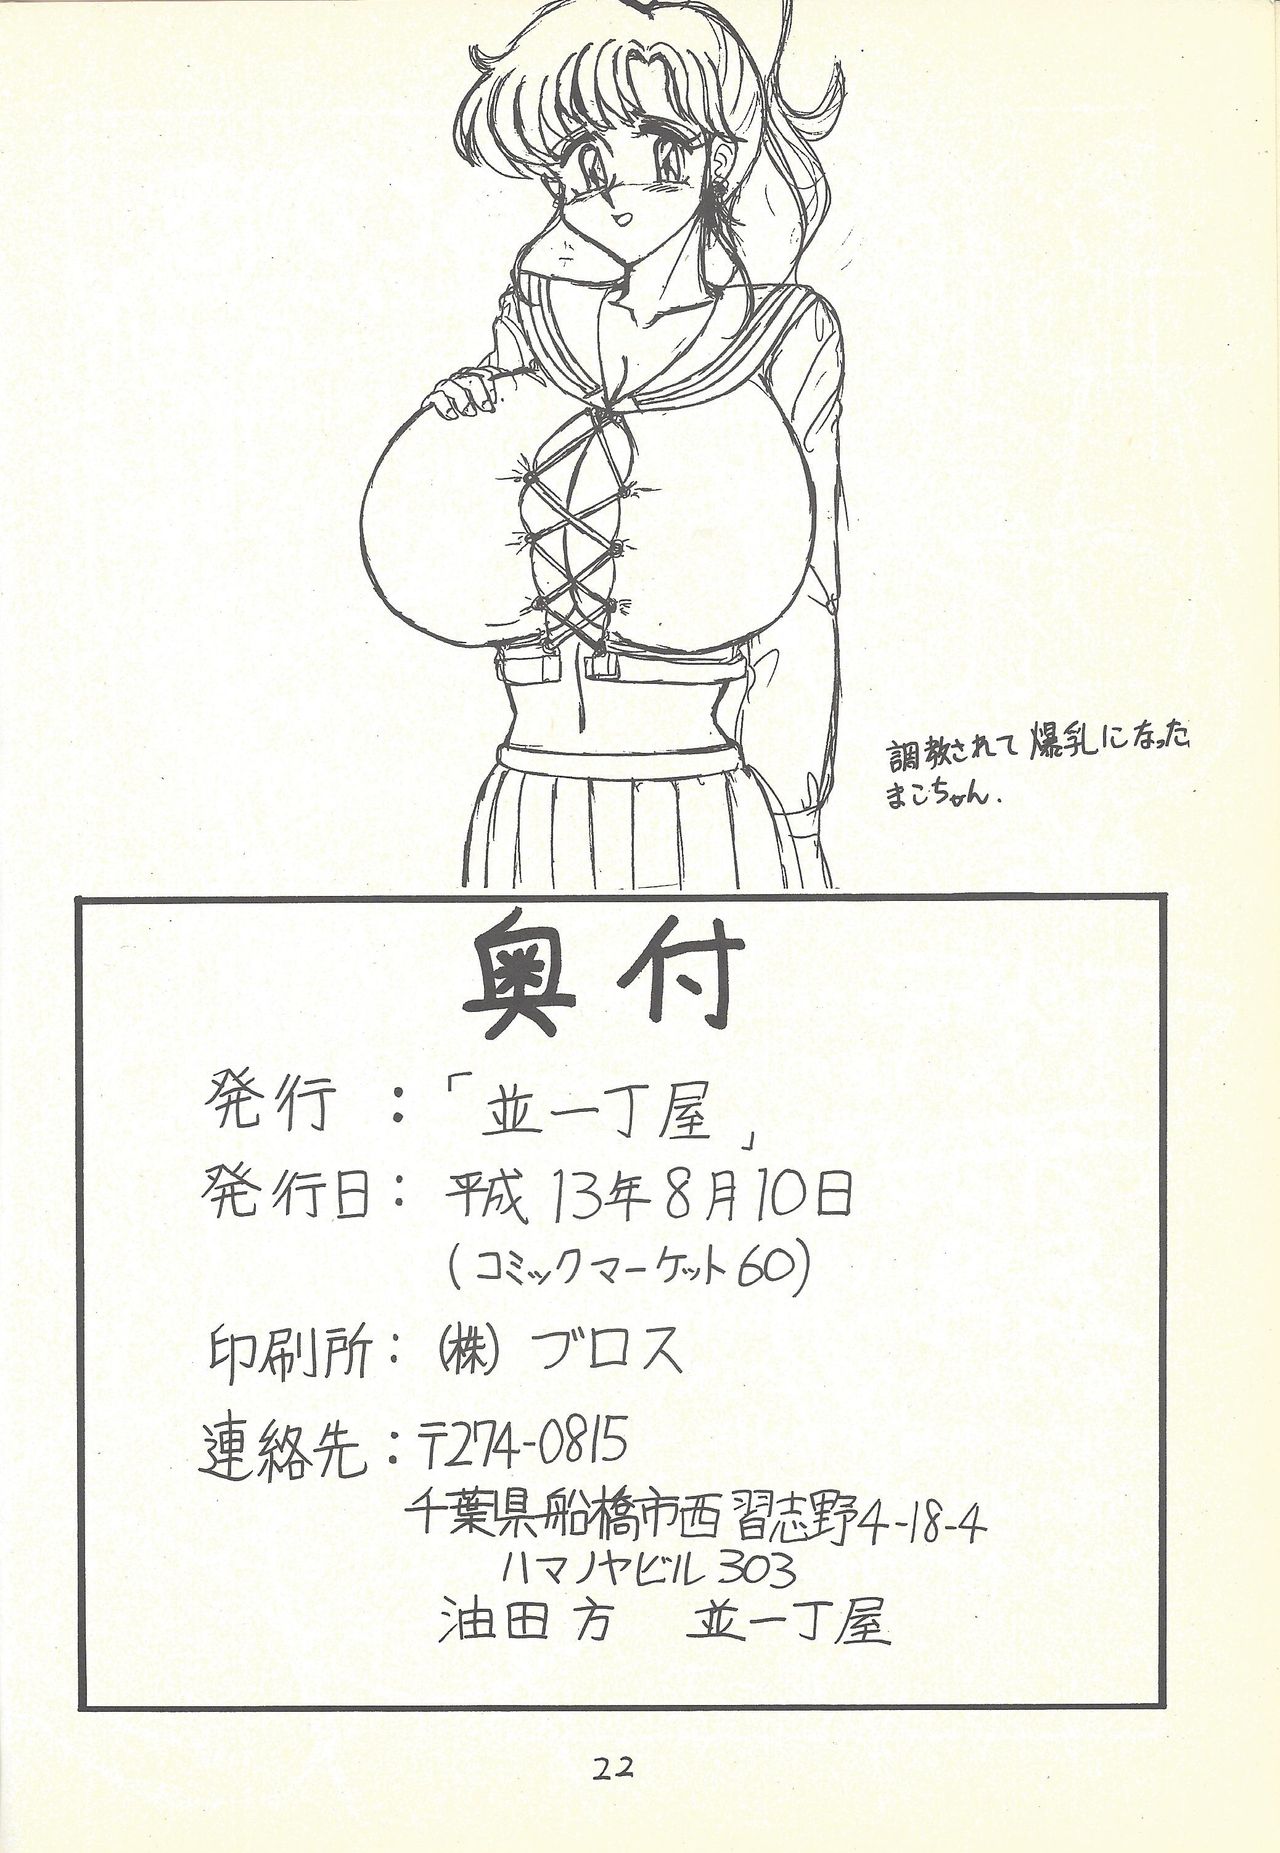 調教されて爆乳になった
まこちゃん.
奥付
発行:「並一丁屋」
発行日:平成13年8月10日
(コミックマーケット60)
印刷所:(株)ブロス
連絡先:〒274-0815
千葉県船橋市西習志野4-18-4
ハマノヤビル303
油田方 並一丁屋
22